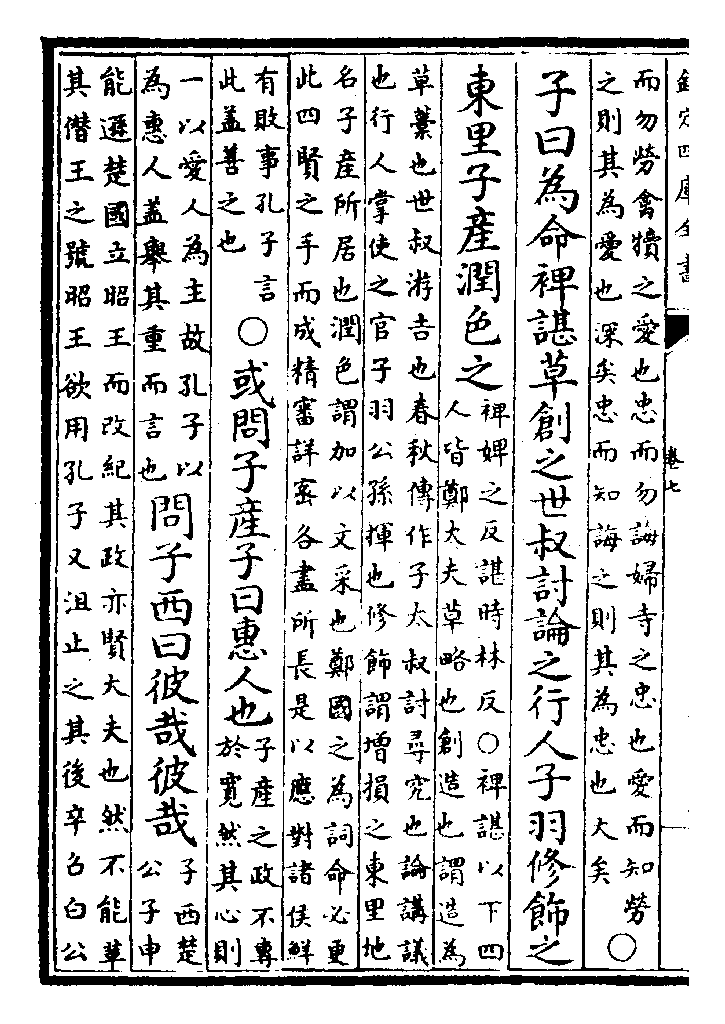 欽定四庫全書
卷七
而勿勞禽犢之愛也忠而勿誨婦寺之忠也愛而知勞
之則其為愛也深矣忠而知誨之則其為忠也大矣○
子曰為命裨諶草創之世叔討論之行人子羽修飾之
東里子產潤色之
裨婢之反諶時林反○裨諶以下四
人皆鄭大夫草略也創造也謂造為
草藁也世叔游吉也春秋傳作子太叔討尋究也論講議
也行人掌使之官子羽公孫揮也修飾謂增損之東里地
名子產所居也潤色謂加以文采也鄭國之為詞命必更
此四賢之手而成精審詳密各盡所長是以應對諸侯鮮
有敗事孔子言
此盖善之也
○或問子產子曰惠人也
子產之政不專
於寛然其心則
一以愛人為主故孔子以
為惠人盖舉其重而言也
問子西曰彼哉彼哉
子西楚
公子申
能遜楚國立昭王而改紀其政亦賢大夫也然不能革
其僭王之號昭王欲用孔子又沮止之其後卒召白公